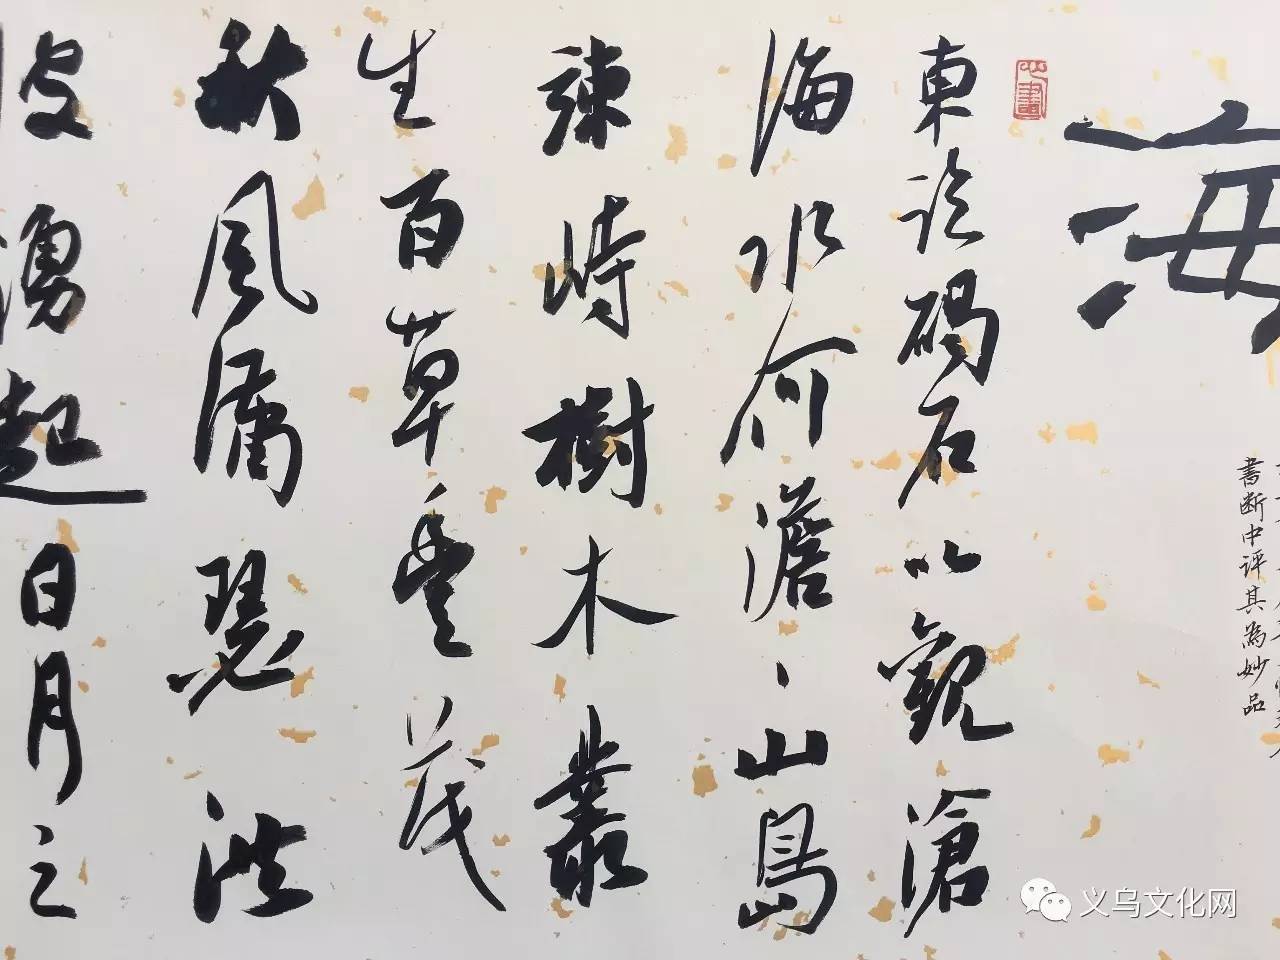 書断中評其為妙品
海
心畫
東臨碣石以觀滄
海水何澹、山島
竦峙樹木叢
生百草豐茂
秋風蕭瑟洪
波湧起日月之
义乌文化网